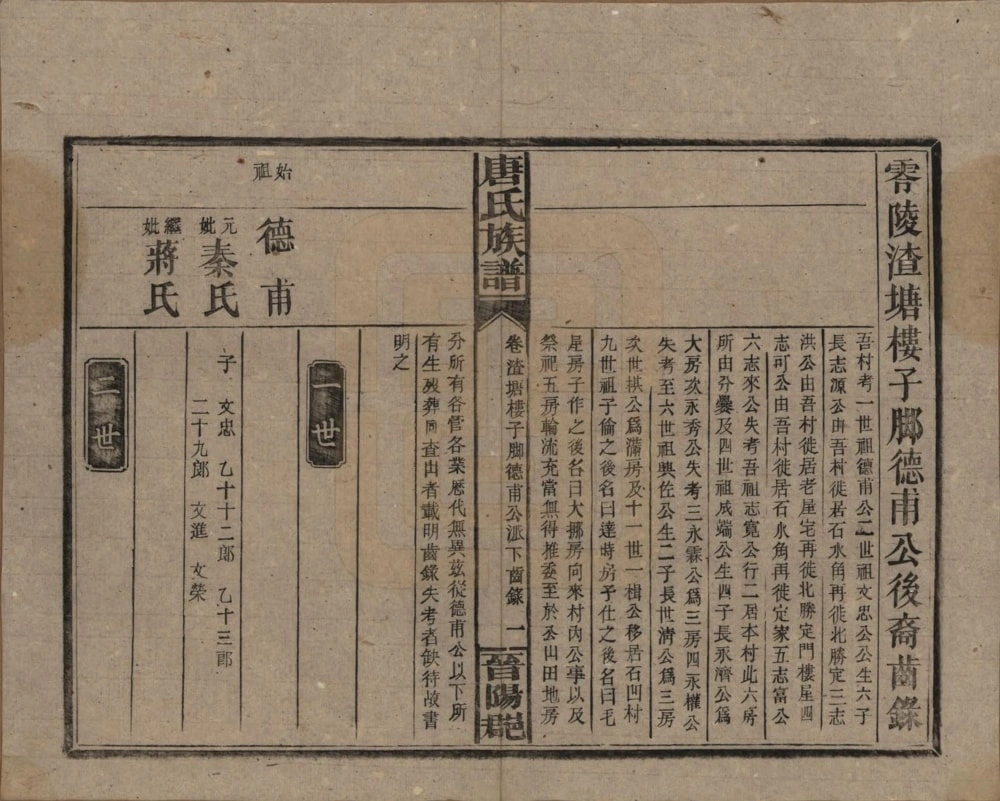 零陵渣塘樓子脚德甫公後裔齒錄
吾村考一世祖德甫公二世祖文忠公公生六子
長志源公由吾村徙居石水角再徙北勝定三志
洪公由吾村徙居老屋宅再徙北勝定門樓星四
志可公由吾村徙居石水角再徙定家五志富公
六志來公失考吾祖志寬公行二居本村此六房
所由分爨及四世祖成端公生四子長永濟公爲
大房次永秀公失考三永霖公爲三房四永權公
失考至六世祖興佐公生二子長世清公爲三房
次世棋公爲滿房及十一世一楫公移居石凹村
九世祖子倫之後名曰達時房子仕之後名曰毛
星房子作之後名曰大挪房向來村內公事以及
祭祀五房輪流充當無得推委至於公山田地房
唐氏族譜
卷渣塘樓子脚德甫公派下齒錄
一
晉陽邑
分所有各管各業歷代無異茲從德甫公以下所
有生歿葬同查出者載明齒錄失考者缺待故書
明之
一世
始祖
德甫
子 文忠 乙十十二郎 乙十三郎
元妣
秦氏
二十九郎 文進 文榮
繼妣
蔣氏
二世